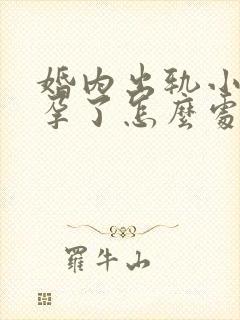 婚内出轨小
孕了怎麼處
羅牛山